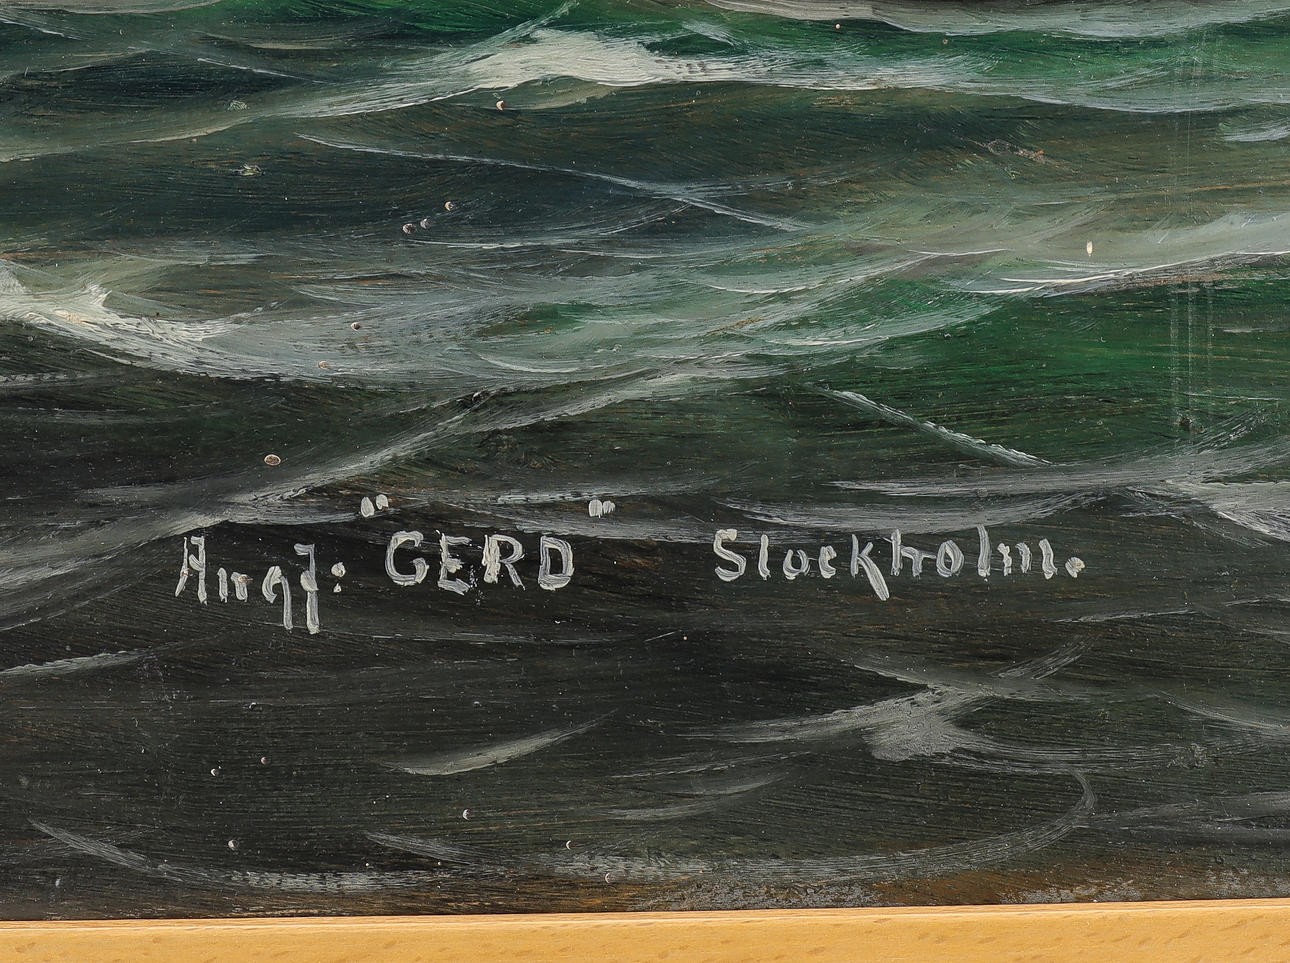 Angf: "GERD" Stockholm.